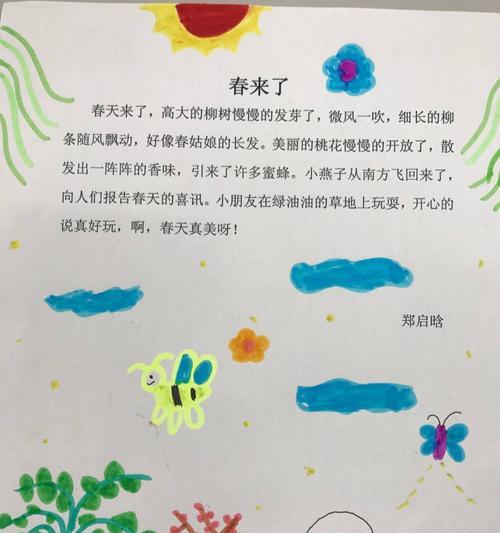 春来了
春天来了，高大的柳树慢慢的发芽了，微风一吹，细长的柳
条随风飘动，好像春姑娘的长发。美丽的桃花慢慢的开放了，散
发出一阵阵的香味，引来了许多蜜蜂。小燕子从南方飞回来了，
向人们报告春天的喜讯。小朋友在绿油油的草地上玩耍，开心的
说真好玩，啊，春天真美呀！
郑启晗